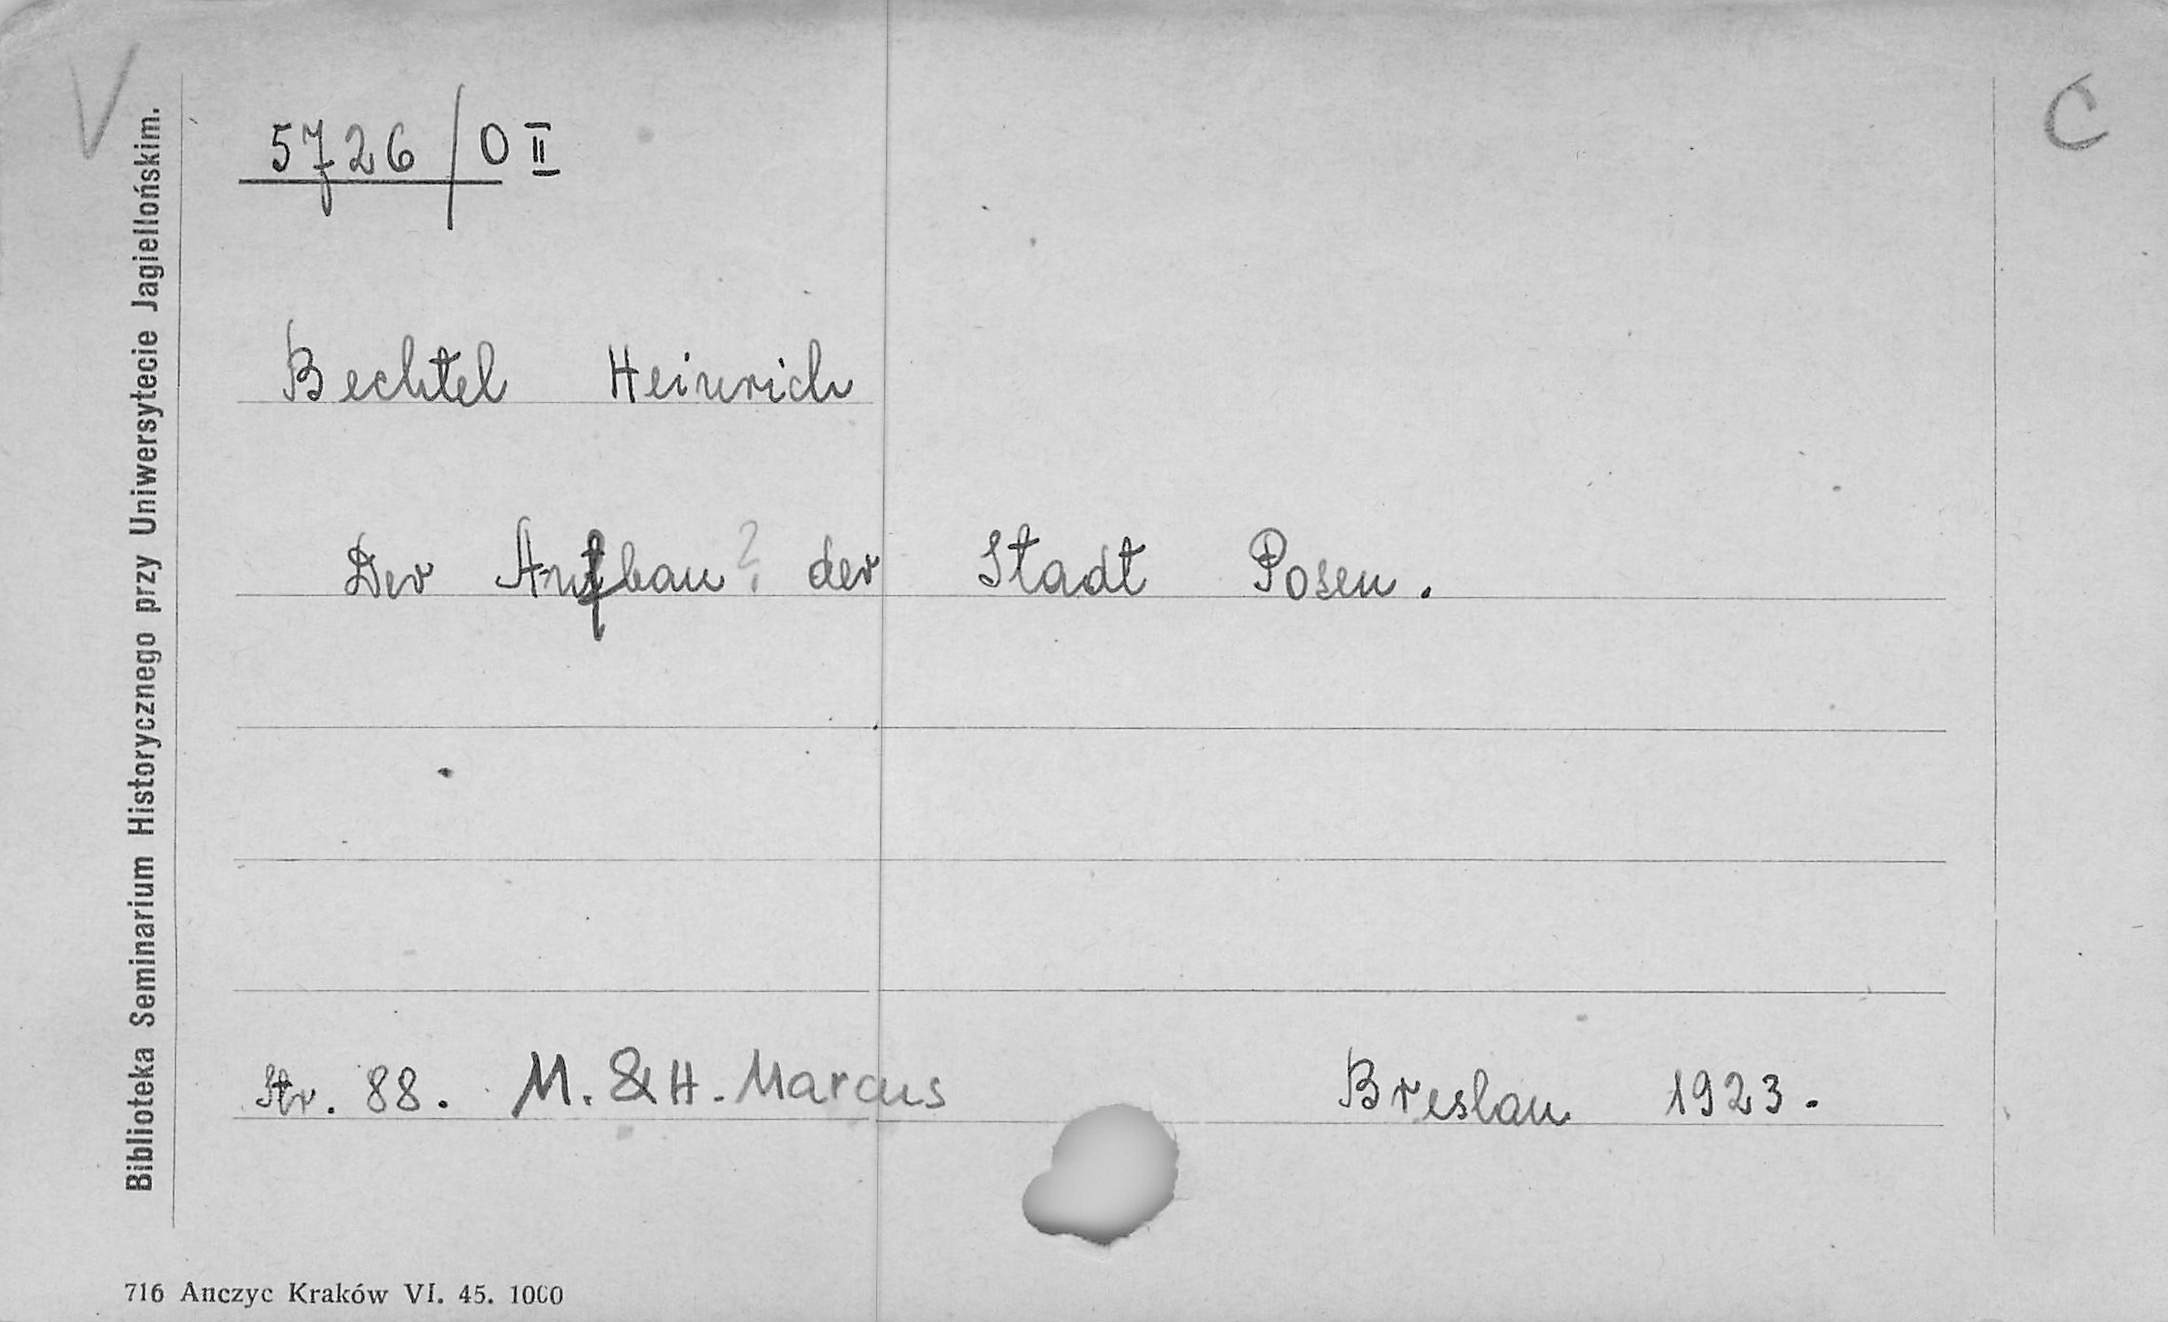 V
C
Biblioteka Seminarium Historycznego przy Uniwersytecie Jagiellońskim.
5726/O II
Bechtel Heinrich
Der Aufbau? der Stadt Posen.
Str. 88. M. & H. Marcus Breslau 1923.
716 Anczyc Kraków VI. 45. 1000